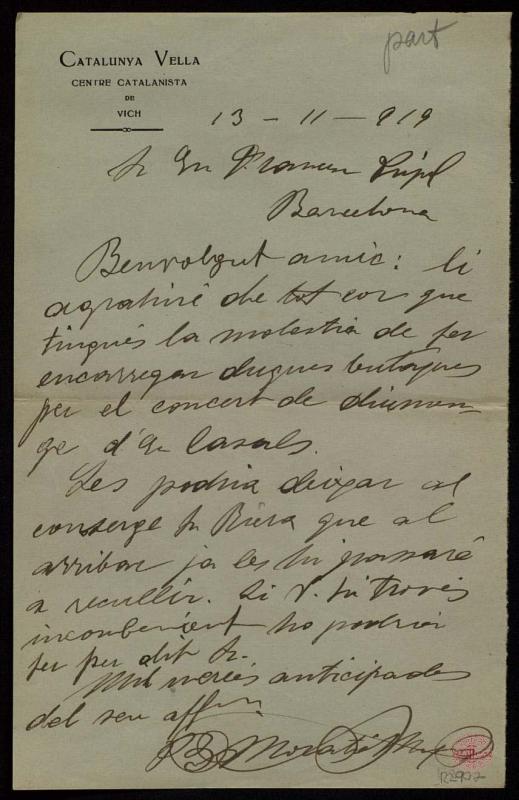 part
CATALUNYA VELLA
CENTRE CATALANISTA
DE
VICH
13 - 11 - 919
Sr En Francesc Pujol
Barcelona
Benvolgut amic: li
agrahiré de tot cor que
tingués la molestia de fer
encarregar dugues butaques
per el concert de diumen-
ge d'En Casals.
Les podria deixar al
conserge Sr Riera que al
arribar ja les hi passaré
a recullir. Si V. hi trovés
inconvenient ho podria
fer per dit Sr.
Mil mercés anticipades
del seu affm